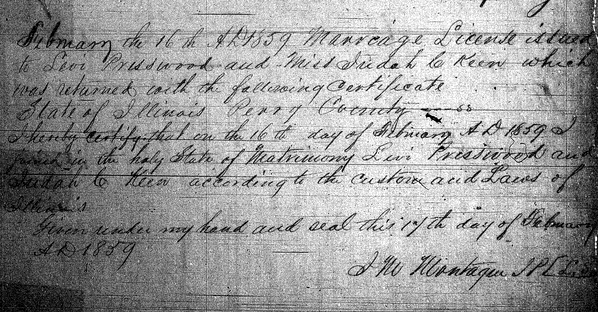 February the 16th A.D 1859 Marriage License issued
to Levi Presswood and Miss Judah C Keen which
was returned with the following certificate
State of Illinois Perry County ss
I hereby certify that on the 16th day of February A D 1859 I
joined in the holy State of Matrimony Levi Presswood and
Judah C Keen according to the custom and Laws of
Illinois
Given under my hand and seal this 17th day of February
A D 1859
J M Montague J P